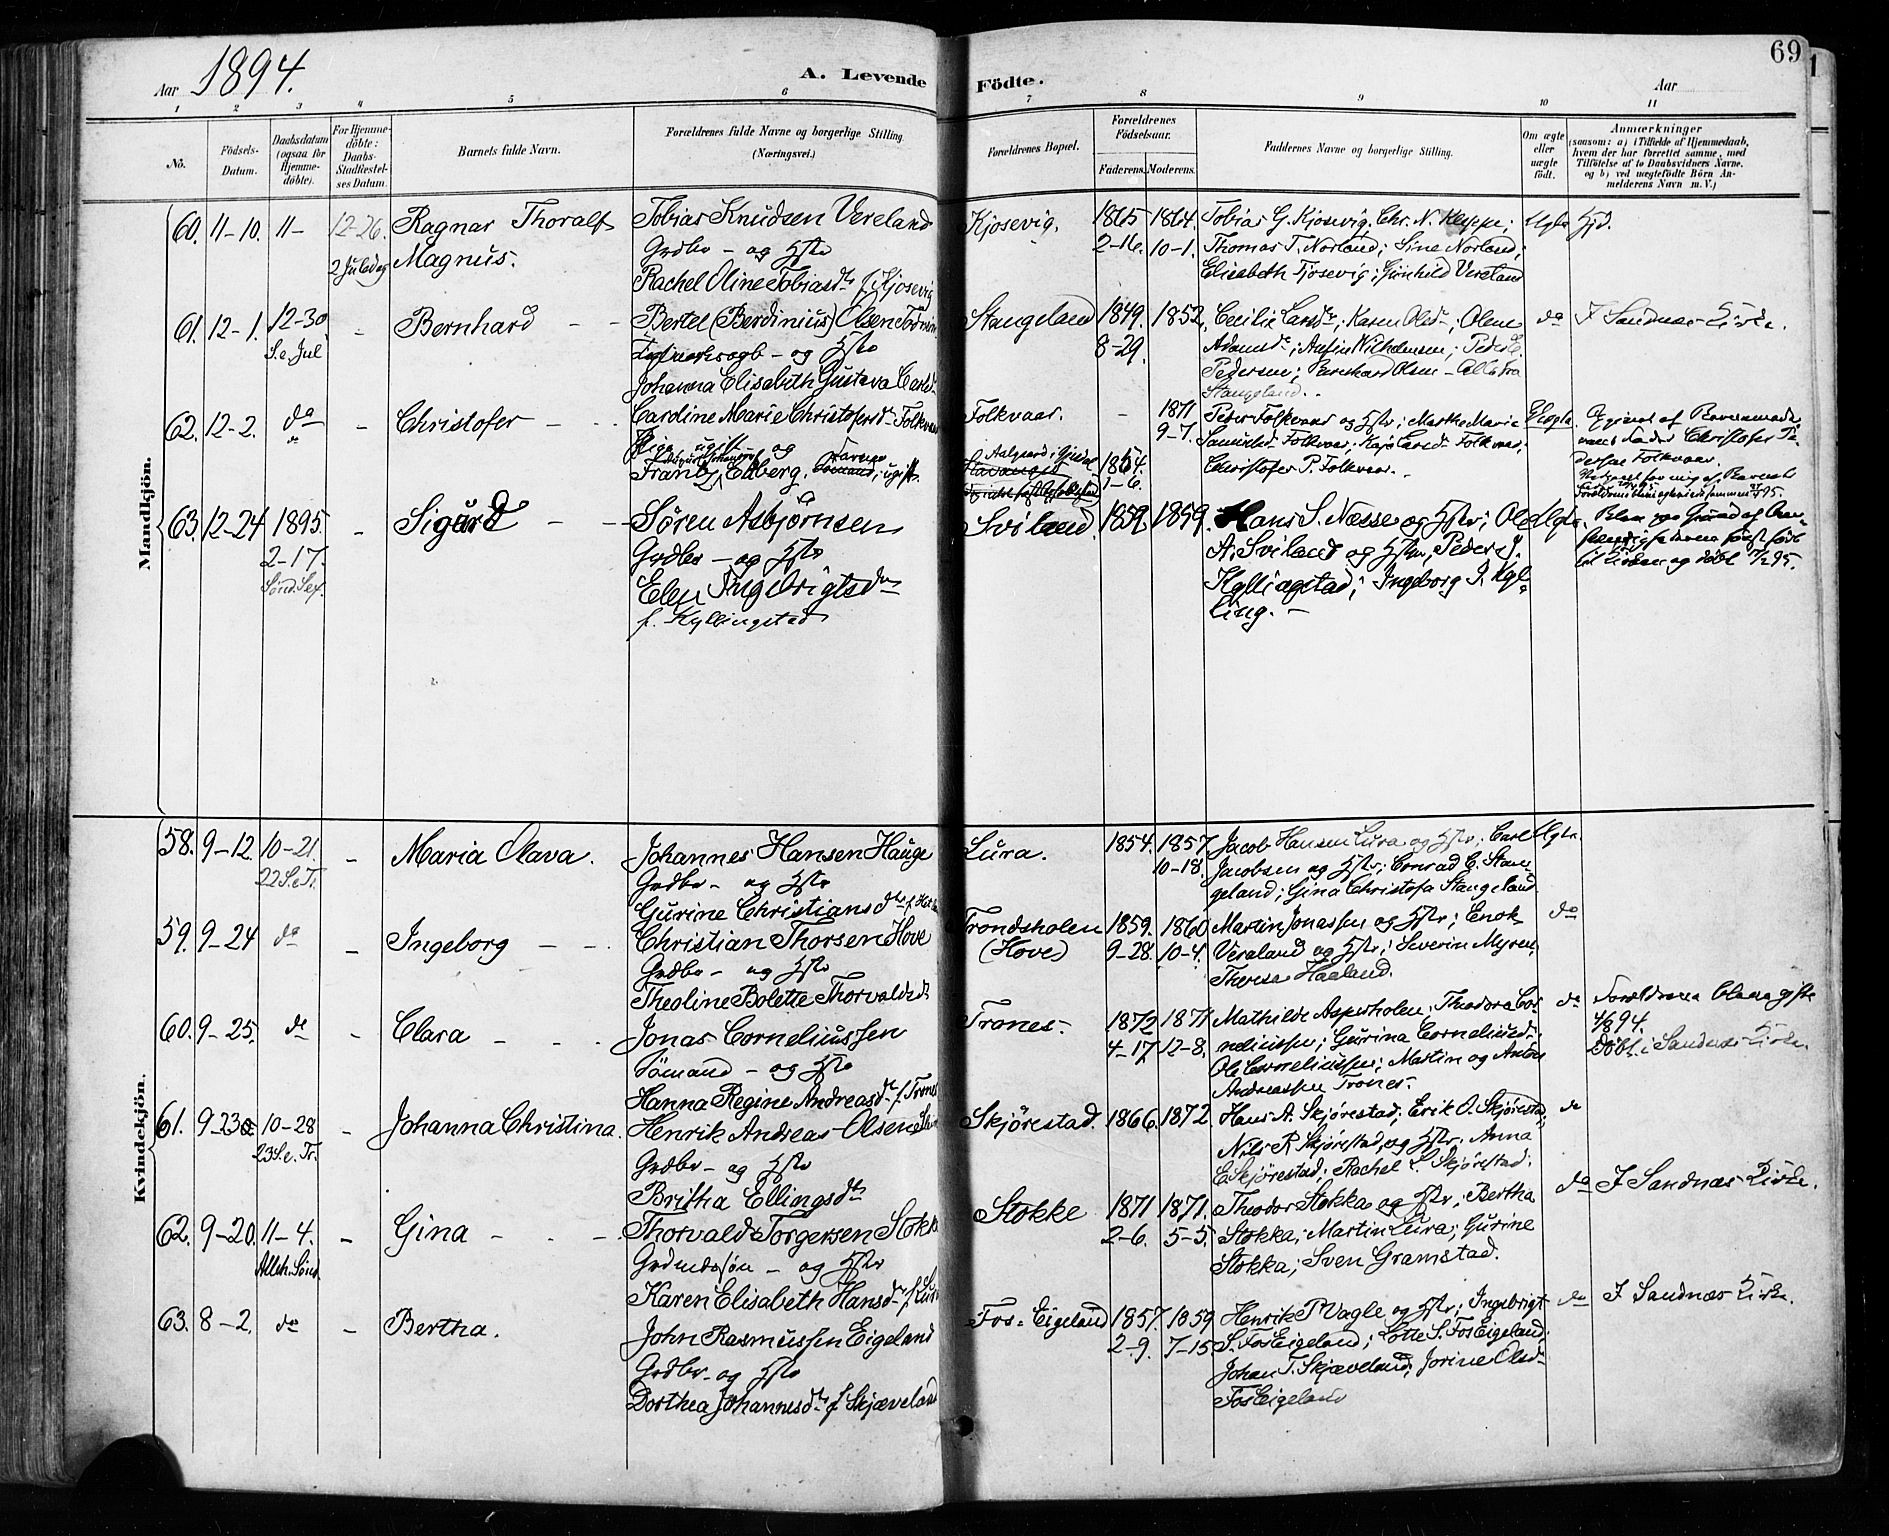 69
Aar 1894.
A. Levende Födte.
Aar
1 2 3 4 5 6 7 8 9 10 11
No.
Födsels-Datum.
Daabsdatum (ogsaa for Hjemme-döbte).
For Hjemme-döbte: Daabs-Stadfæstel-ses Datum.
Barnets fulde Navn.
Forældrenes fulde Navne og borgerlige Stilling
(Næringsvei.)
Forældrenes Bopæl.
Forældrenes Födselsaar.
Faderens. Moderens.
Faddernes Navne og borgerlige Stilling.
Om ægte eller uægte födt.
Anmærkninger
(saasom: a) i Tilfælde af Hjemmedaab,
hvem der har forrettet samme, med
Tilföielse af to Daabsvidners Navne,
og b) ved uægtefödte Börn An-
melderens Navn m. V.)
Mandkjön.
60. 11-10. 11- 12-26. Ragnar Thoralf Tobias Knudsen Vereland Kjosevig. 1865 1864. Tobias G. Kjosevig, Chr. N. Kleppe;
2 Juledag Magnus. Grdbr - og Hstr 2-16. 10-1. Thomas T. Norland; Sine Norland;
Rachel Oline Tobiasdtr f. Kjosevig Elisabeth Kjosevig; Gunhild Vereland
61. 12-1. 12-30 - Bernhard - - Bertel (Berdinius) Olsen Stangeland 1849. 1852. Cecilie Larsdtr, Karen Olsdtr, Olene do I Sandnæs Kirke.
S. e. Jul - og Hstr 8-29. Wilhelmsen; Peder
Johanna Elisabeth Gustava Pedersen; Bernhard Olsen -
Stangeland.
62. 12-2. do - Christofer - - Cardine Marie Christofersdtr Folkvaar Folkvaar. - 1871 Peder Folkvaar og Hstr; Marthe Marie
Pige ugift og 9-7. Folkvaar; Folkvaar;
Frantz Edberg, ugift. 1864. Christofer P. Folkvaar. Christofer Pedersen Folkvaar.
1-6.
63. 12-24 1895 - Sigurd - - Søren Asbjørnsen Sviland. 1859. 1859. Hans S. Næsse og Hstr; Ole
2-17. Grdbr - og Hstr A. Sviland og Hstr, Peder J.
Sønd. Sex. Elen Ingebrigtsdtr Kyllingstad; Ingeborg I. Kyl-
f. Kyllingstad ling. - til Kirken og døbt 17/2 95.
Kvindekjön.
58. 9-12. 10-21. - Maria Olava. Johannes Hansen Hauge Lura. 1854. 1857 Jacob Hansen Lura og Hstr; Carl
22 S. e. Tr. Grdbr - og Hstr 10-18. Jacobsen og Hstr; Conrad C. Stan-
Gurine Christiansdtr geland; Gina Christofa Stangeland
59. 9-24 do - Ingeborg - - Christian Thorsen Hove Trondsholen 1859. 1860. Martin Jonassen og Hstr; Enok do
Grdbr - og Hstr (Hove) 9-28. 10-4. Vereland og Hstr; Severin Myren;
Theoline Bolette Thorvaldsdtr Theresa Haaland.
60. 9-25. do - Clara - - Jonas Corneliussen Trones. 1872 1871 Mathilde Asperholen; Theodora Cor- do Forældrene bleve gifte
Sømand - og Hstr 4-17 12-8. neliussen; Gurina Corneliusdtr; 4/8 94.
Hanna Regine Andreasdtr f. Trones Ole Corneliussen; Martin og Anton Døbt i Sandnæs Kirke
Andreassen Trones.
61. 9-23 10-28 - Johanna Christina. Henrik Andreas Olsen Skjørestad. 1866. 1872. Hans A. Skjørestad; Erik O. Skjørestad; do
23 S. e. Tr. Grdbr - og Hstr Nils R. Skjørestad og Hstr; Anna
Britha Ellingsdtr E. Skjørestad; Rachel L. Skjørestad.
62. 9-20. 11-4. - Gina - - Thorvald Torgersen Stokke Stokke 1871 1871. Theodor Stokka og Hstr; Bertha do I Sandnæs Kirke.
Alleh. Sønd. Grdmdssøn - og Hstr 2-6. 5-5. Stokka; Martin Lura; Gurine
Karen Elisabeth Hansdtr f. Lura Stokka; Sven Gramstad.
63. 8-2. do - Bertha. John Rasmussen Eigeland Fos-Eigeland 1857. 1859 Henrik P. Vagle og Hstr; Ingebrigt do I Sandnæs Kirke.
Grdbr - og Hstr 2-9. 7-15 S. FosEigeland; Lotte S. FosEigeland;
Dorthea Johannesdtr f. Skjæveland Johan T. Skjæveland; Jorine Olsdtr
FosEigeland